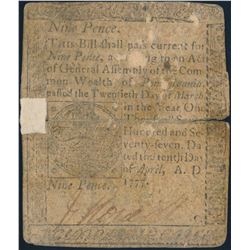 Nine Pence.
This Bill shall pass current for
Nine Pence, according to an Act
of General Assembly of the Com-
mon Wealth of Pennsylvania
passed the Twentieth Day of March
in the Year One
Thousand Seven
Hundred and
Seventy-seven. Da-
ted the tenth Day
of April, A. D.
Nine Pence. 1777.